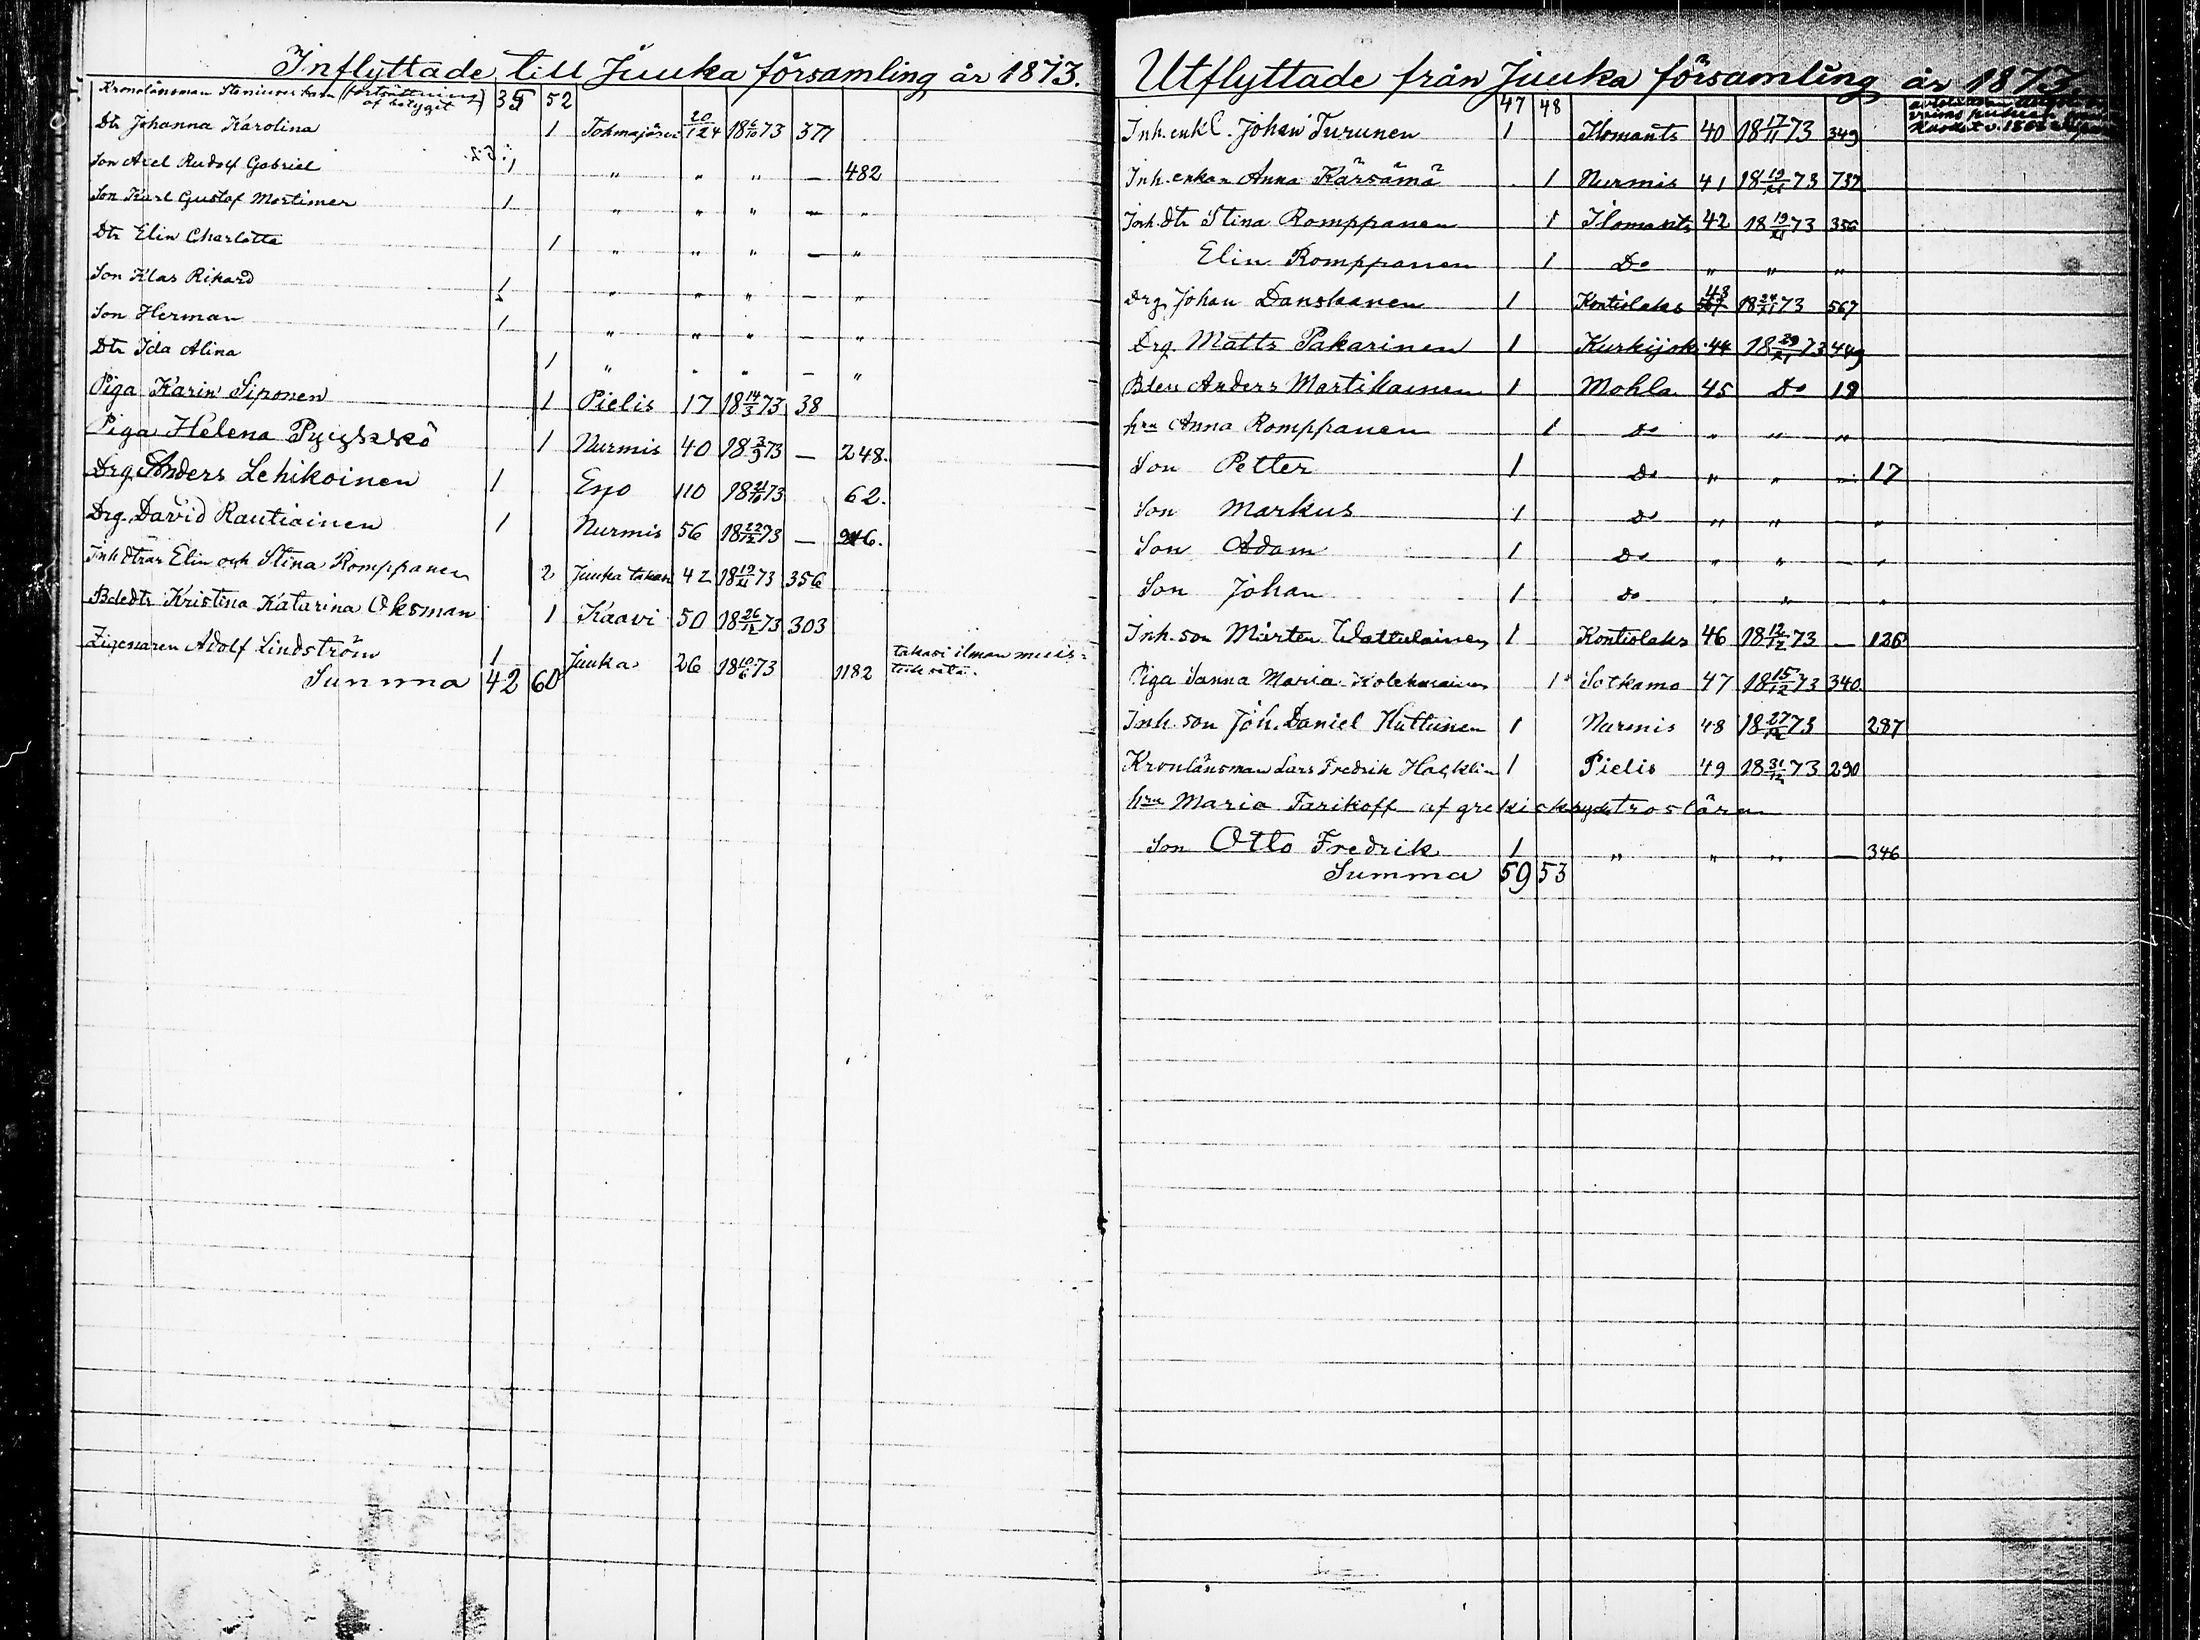 Inflyttade till Juuka församling år 1873.
Kronolänsman Stenius barn (fortsättning af betyget) 35 52
Dtr Johanna Karolina 1 Tohmajärvi 20/124 18 6/10 73 377
Son Axel Rudolf Gabriel 1 " " " — 482
Son Karl Gustaf Mortimer 1 " " " — "
Dtr Elin Charlotta 1 " " " — "
Son Klas Rikard 1 " " " — "
Son Herman 1 " " " — "
Dtr Ida Alina 1 " " " — "
Piga Karin Siponen 1 Pielis 17 18 14/3 73 38
Piga Helena Pyykkö 1 Nurmis 40 18 3/3 73 — 248.
Drg. Anders Lehikoinen 1 Eno 110 18 73 62.
Drg. David Rautiainen 1 Nurmis 56 18 22/12 73 — 246.
Inh. dtrar Elin och Stina Romppanen 2 Juuka takas 42 18 19/11 73 356
Bdedtr Kristina Katarina Oksman 1 Kaavi 50 18 26/12 73 303
Zigenaren Adolf Lindström 1 Juuka 26 18 73 1182 takasi ilman muis-
Summa 42 60
Utflyttade från Juuka församling år 1873.
47 48
Inh. enkl. Johan Turunen 1 Ilomants 40 18 17/11 73 349
Inh. enkan Anna Kärsämä 1 Nurmis 41 18 19/11 73 737
Inh. Dtr Stina Romppanen 1 Ilomants 42 18 19/11 73 356
Elin Romppanen 1 Do " " "
Drg. Johan Danskanen 1 Kontiolaks 43 18 24/11 73 567
Drg. Matts Pakarinen 1 Kurkijok. 44 18 29/11 73 449
Bden Anders Martikainen 1 Mohla 45 Do 19
hru Anna Romppanen 1 Do " " "
Son Petter 1 Do " " — 17
Son Markus 1 Do " " — "
Son Adam 1 Do " " — "
Son Johan 1 Do " " "
Inh. son Mårten Wattulainen 1 Kontiolaks 46 18 12/12 73 — 126
Piga Sanna Maria Kolehmainen 1 Sotkamo 47 18 15/12 73 340
Inh. son Joh. Daniel Huttunen 1 Nurmis 48 18 27/12 73 287
Kronlänsman Lars Fredrik Hagklin 1 Pielis 49 18 31/12 73 290
hru Maria Tarikoff af grekisk trosläran
Son Otto Fredrik 1 " " " — 346
Summa 59 53